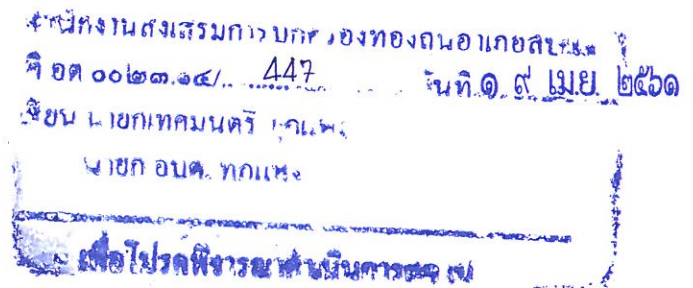 สำนักงานส่งเสริมการปกครองท้องถิ่นอำเภอ
ที่ อต ๐๐๒๓.๑๔/ 447 วันที่ ๑ ๙ เม.ย. ๒๕๖๑
เรียน นายกเทศมนตรี ทุกแห่ง
นายก อบต. ทุกแห่ง
เพื่อโปรดพิจารณาดำเนินการต่อไป